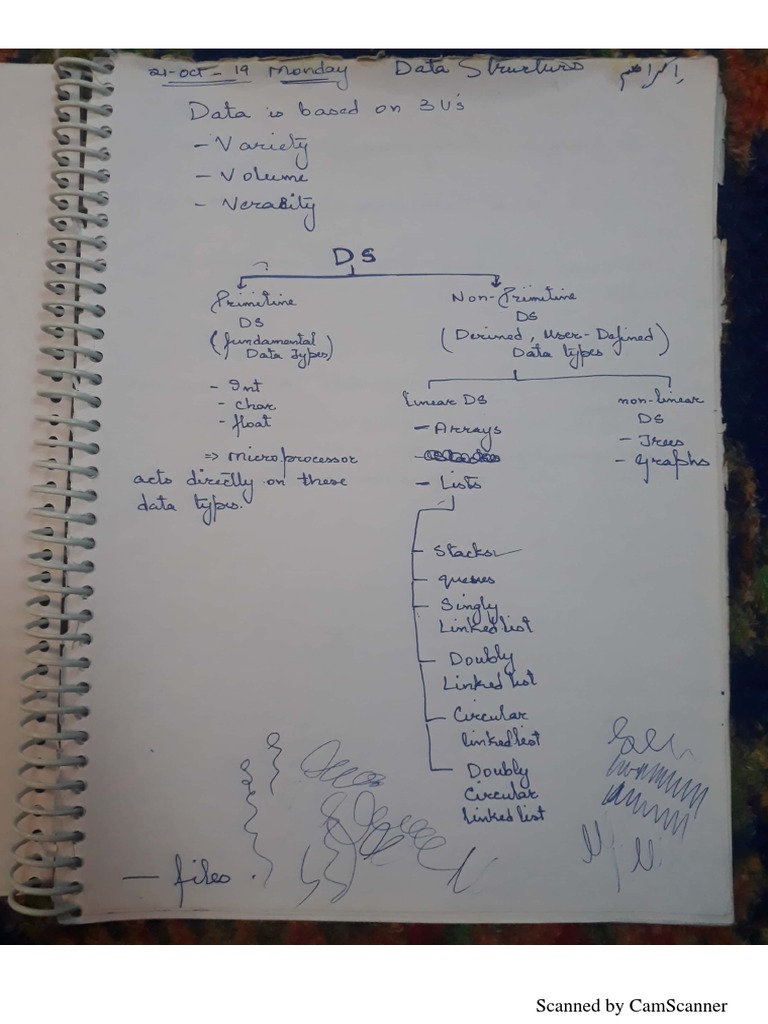 21-Oct-19 Monday Data Structures ابراهيم
Data is based on 3V's
- Variety
- Volume
- Verasity
DS
Primitive
DS
(fundamental
Data Types)
- Int
- char
- float
=> microprocessor
acts directly on these
data types.
Non-Primitive
DS
(Derived, User-Defined)
Data types
linear DS
- Arrays
- Lists
Stacks
queues
Singly
Linked list
Doubly
Linked list
Circular
linked list
Doubly
Circular
linked list
non-linear
DS
- Trees
- Graphs
- files.
Scanned by CamScanner